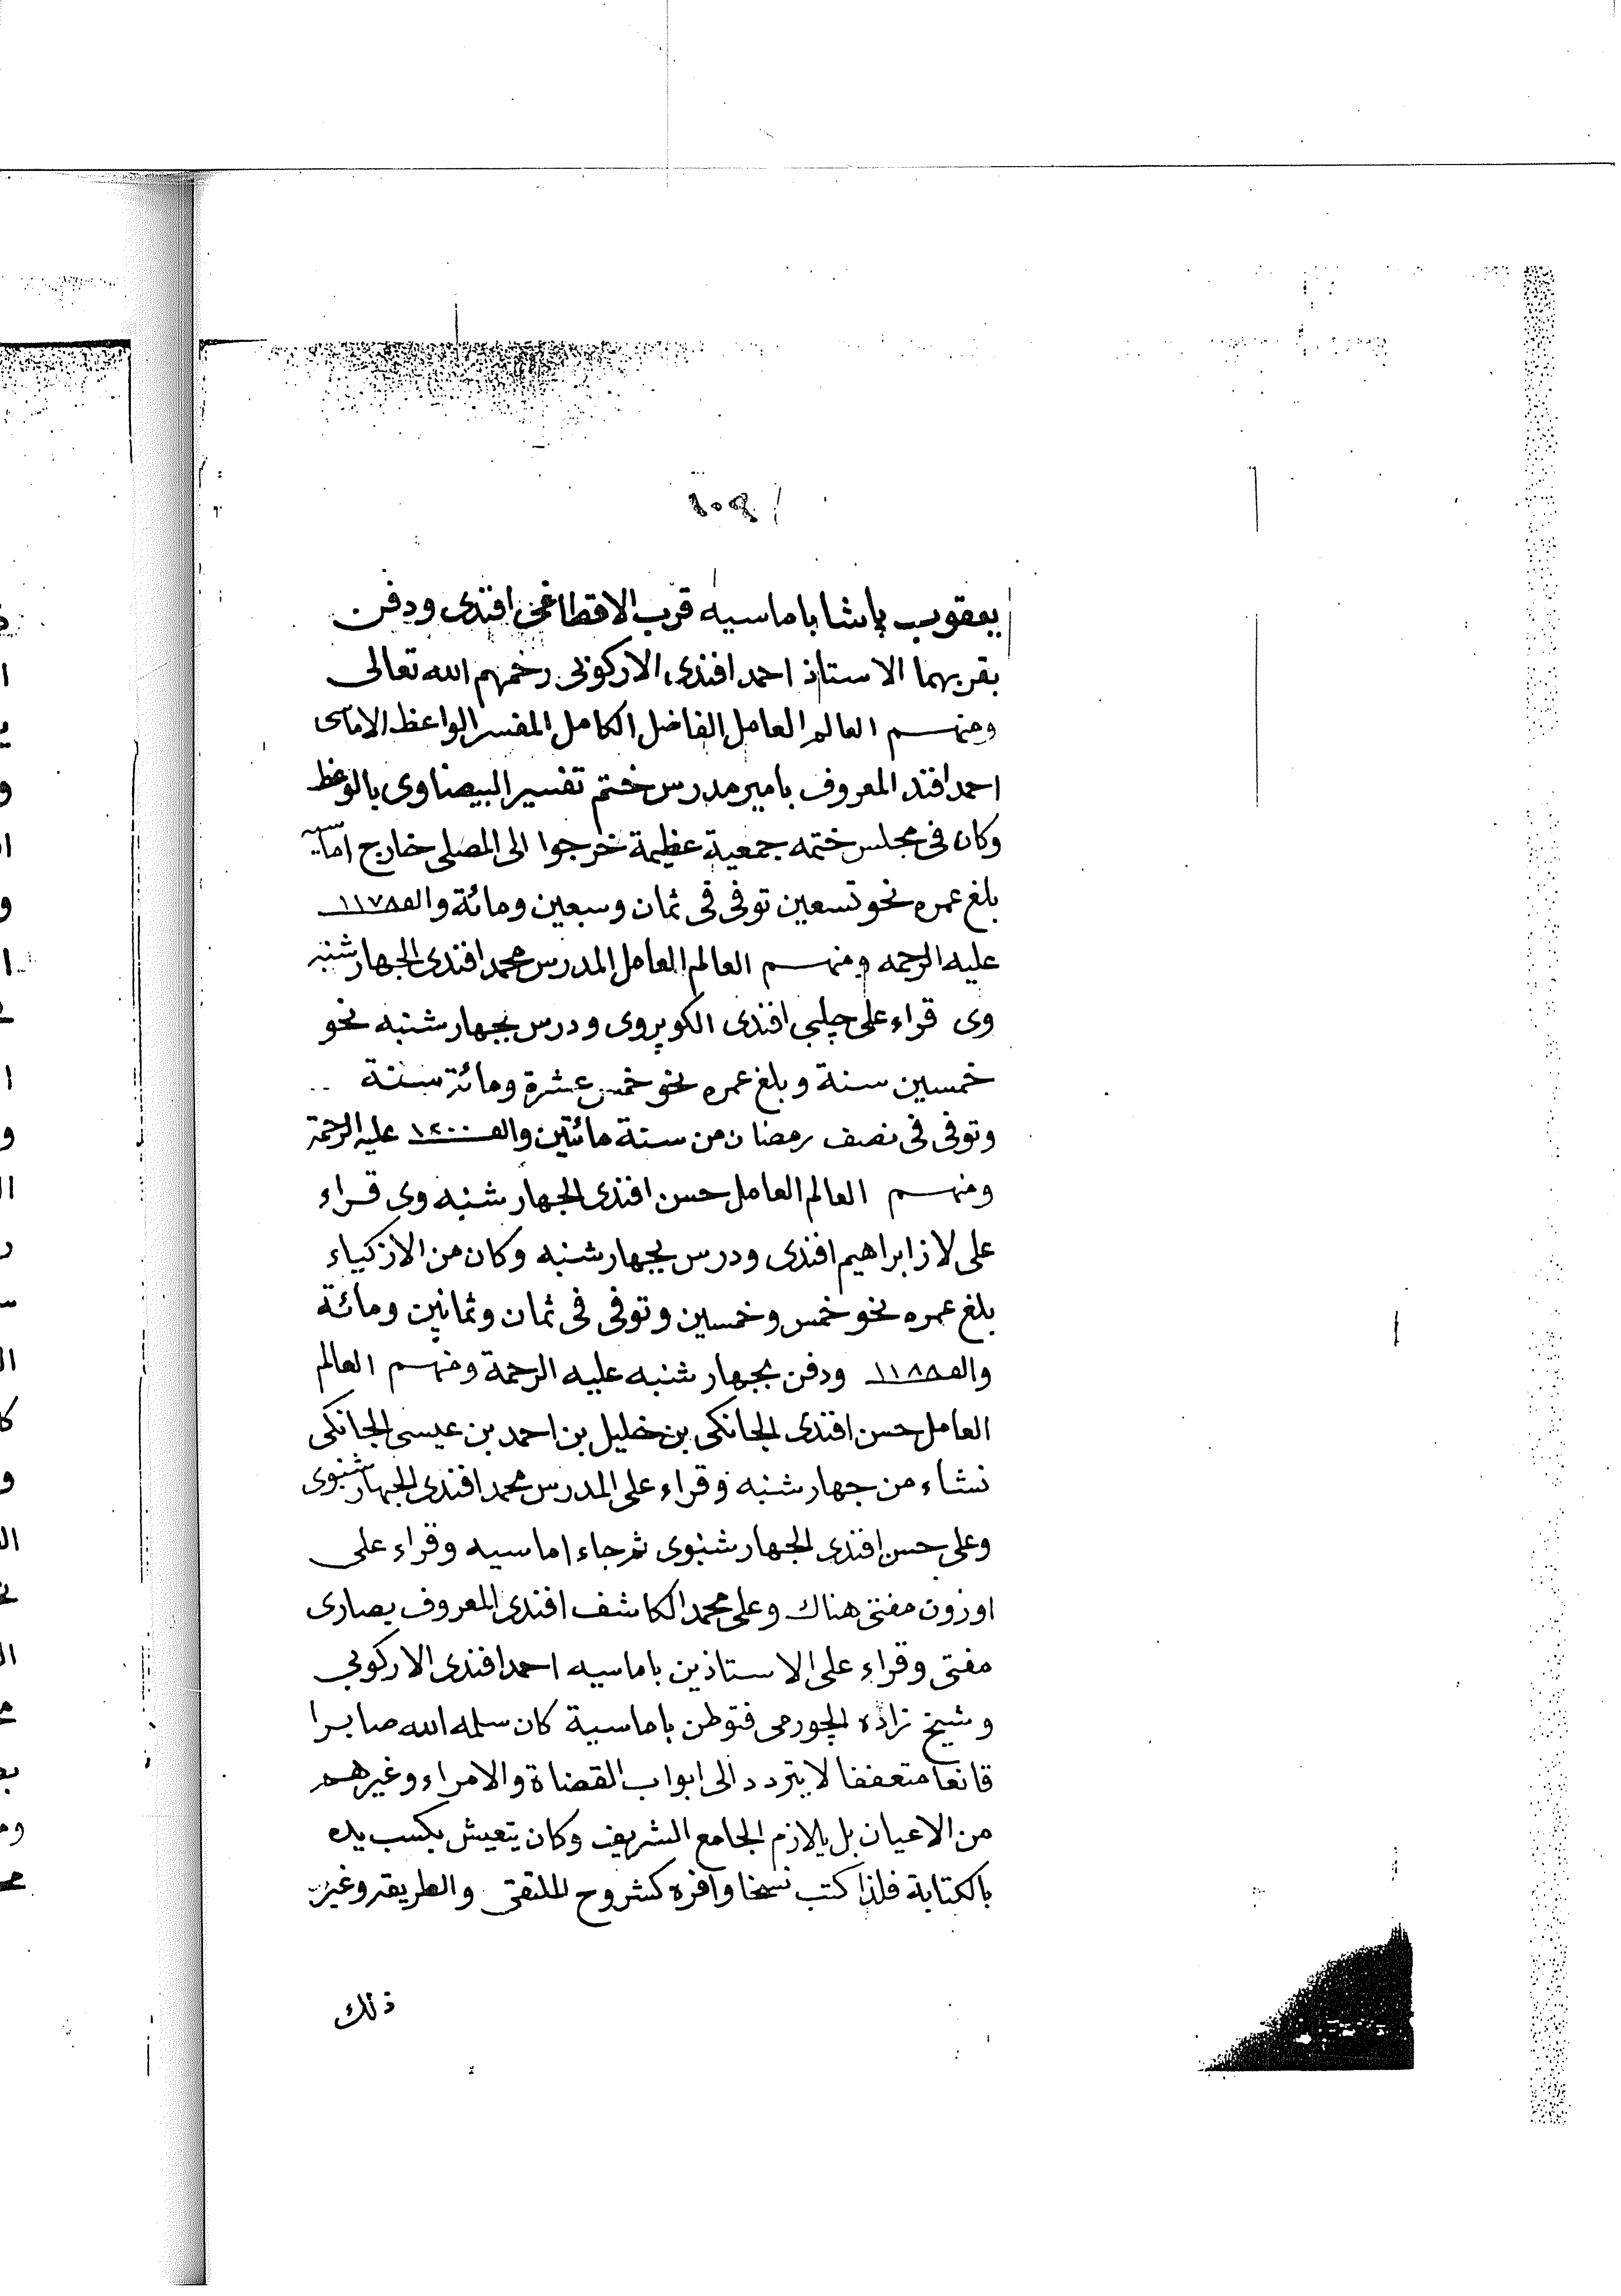 يعقوب پاشا باماسيه قرب الاقطاغى افندى ودفن
بقربهما الاستاذ احمد افندى الاركوبى رحمهم الله تعالى
ومنهم العالم العامل الفاضل الكامل المفسر الواعظ الاماسى
احمد افند المعروف بامير مدرس ختم تفسير البيضاوى بالوعظ
وكان فى مجلس ختمه جمعية عظيمة خرجوا الى المصلى خارج اماسيه
بلغ عمره نحو تسعين توفى فى ثمان وسبعين ومائة والف ١١٧٨
عليه الرحمه ومنهم العالم العامل المدرس محمد افندى الجهار شنبه
وى قراء على چلبى افندى الكوپروى ودرس بجهار شنبه نحو
خمسين سنة وبلغ عمره نحو خمس عشرة ومائة سنة
وتوفى فى نصف رمضان من سنة مائتين والف ١٢٠٠ عليه الرحمة
ومنهم العالم العامل حسن افندى الجهار شنبه وى قراء
على لاز ابراهيم افندى ودرس بجهار شنبه وكان من الازكياء
بلغ عمره نحو خمس وخمسين وتوفى فى ثمان وثمانين ومائة
والف ١١٨٨ ودفن بجهار شنبه عليه الرحمة ومنهم العالم
العامل حسن افندى الجانكى بن خليل بن احمد بن عيسى الجانكى
نشاء من جهار شنبه وقراء على المدرس محمد افندى الجهار شنبوى
وعلى حسن افندى الجهار شنبوى ثم جاء اماسيه وقراء على
اوزون مفتى هناك وعلى محمد الكاشف افندى المعروف بصارى
مفتى وقراء على الاستاذين باماسيه احمد افندى الاركوبى
وشيخ زاده الچورمى فتوطن باماسية كان سلمه الله صابرا
قانعا متعففا لا يتردد الى ابواب القضاة والامراء وغيرهم
من الاعيان بل يلازم الجامع الشريف وكان يتعيش بكسب يده
بالكتابة فلذا كتب نسخا وافره كشروح الملتقى والطريقه وغير
ذلك